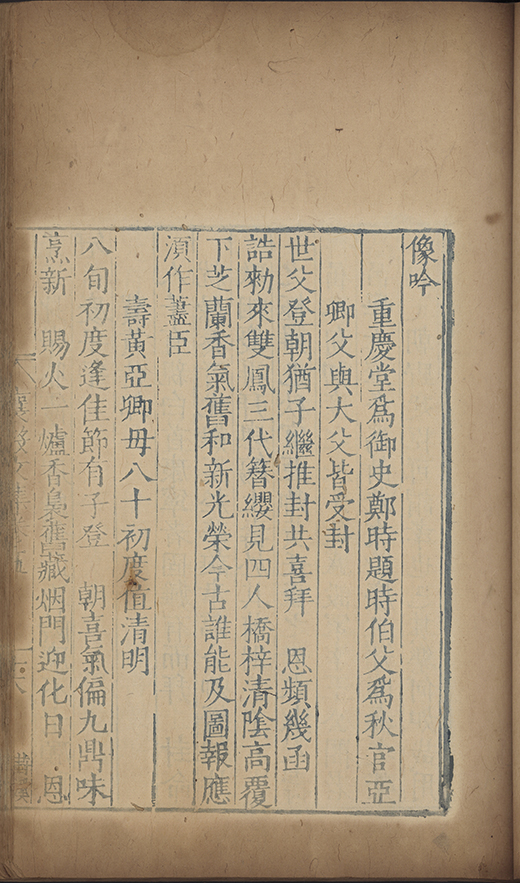 像吟
重慶堂爲御史鄭時題時伯父爲秋官亞
卿父與大父皆受封
世父登朝猶子繼推封共喜拜　恩頻幾函
誥勑來雙鳳三代簪纓見四人橋梓清陰高覆
下芝蘭香氣舊和新光榮今古誰能及圖報應
湏作藎臣
壽黃亞卿母八十初度値清明
八旬初度逢佳節有子登　朝喜氣偏九鼎味
烹新　賜火一爐香裊舊藏烟門迎化日　恩